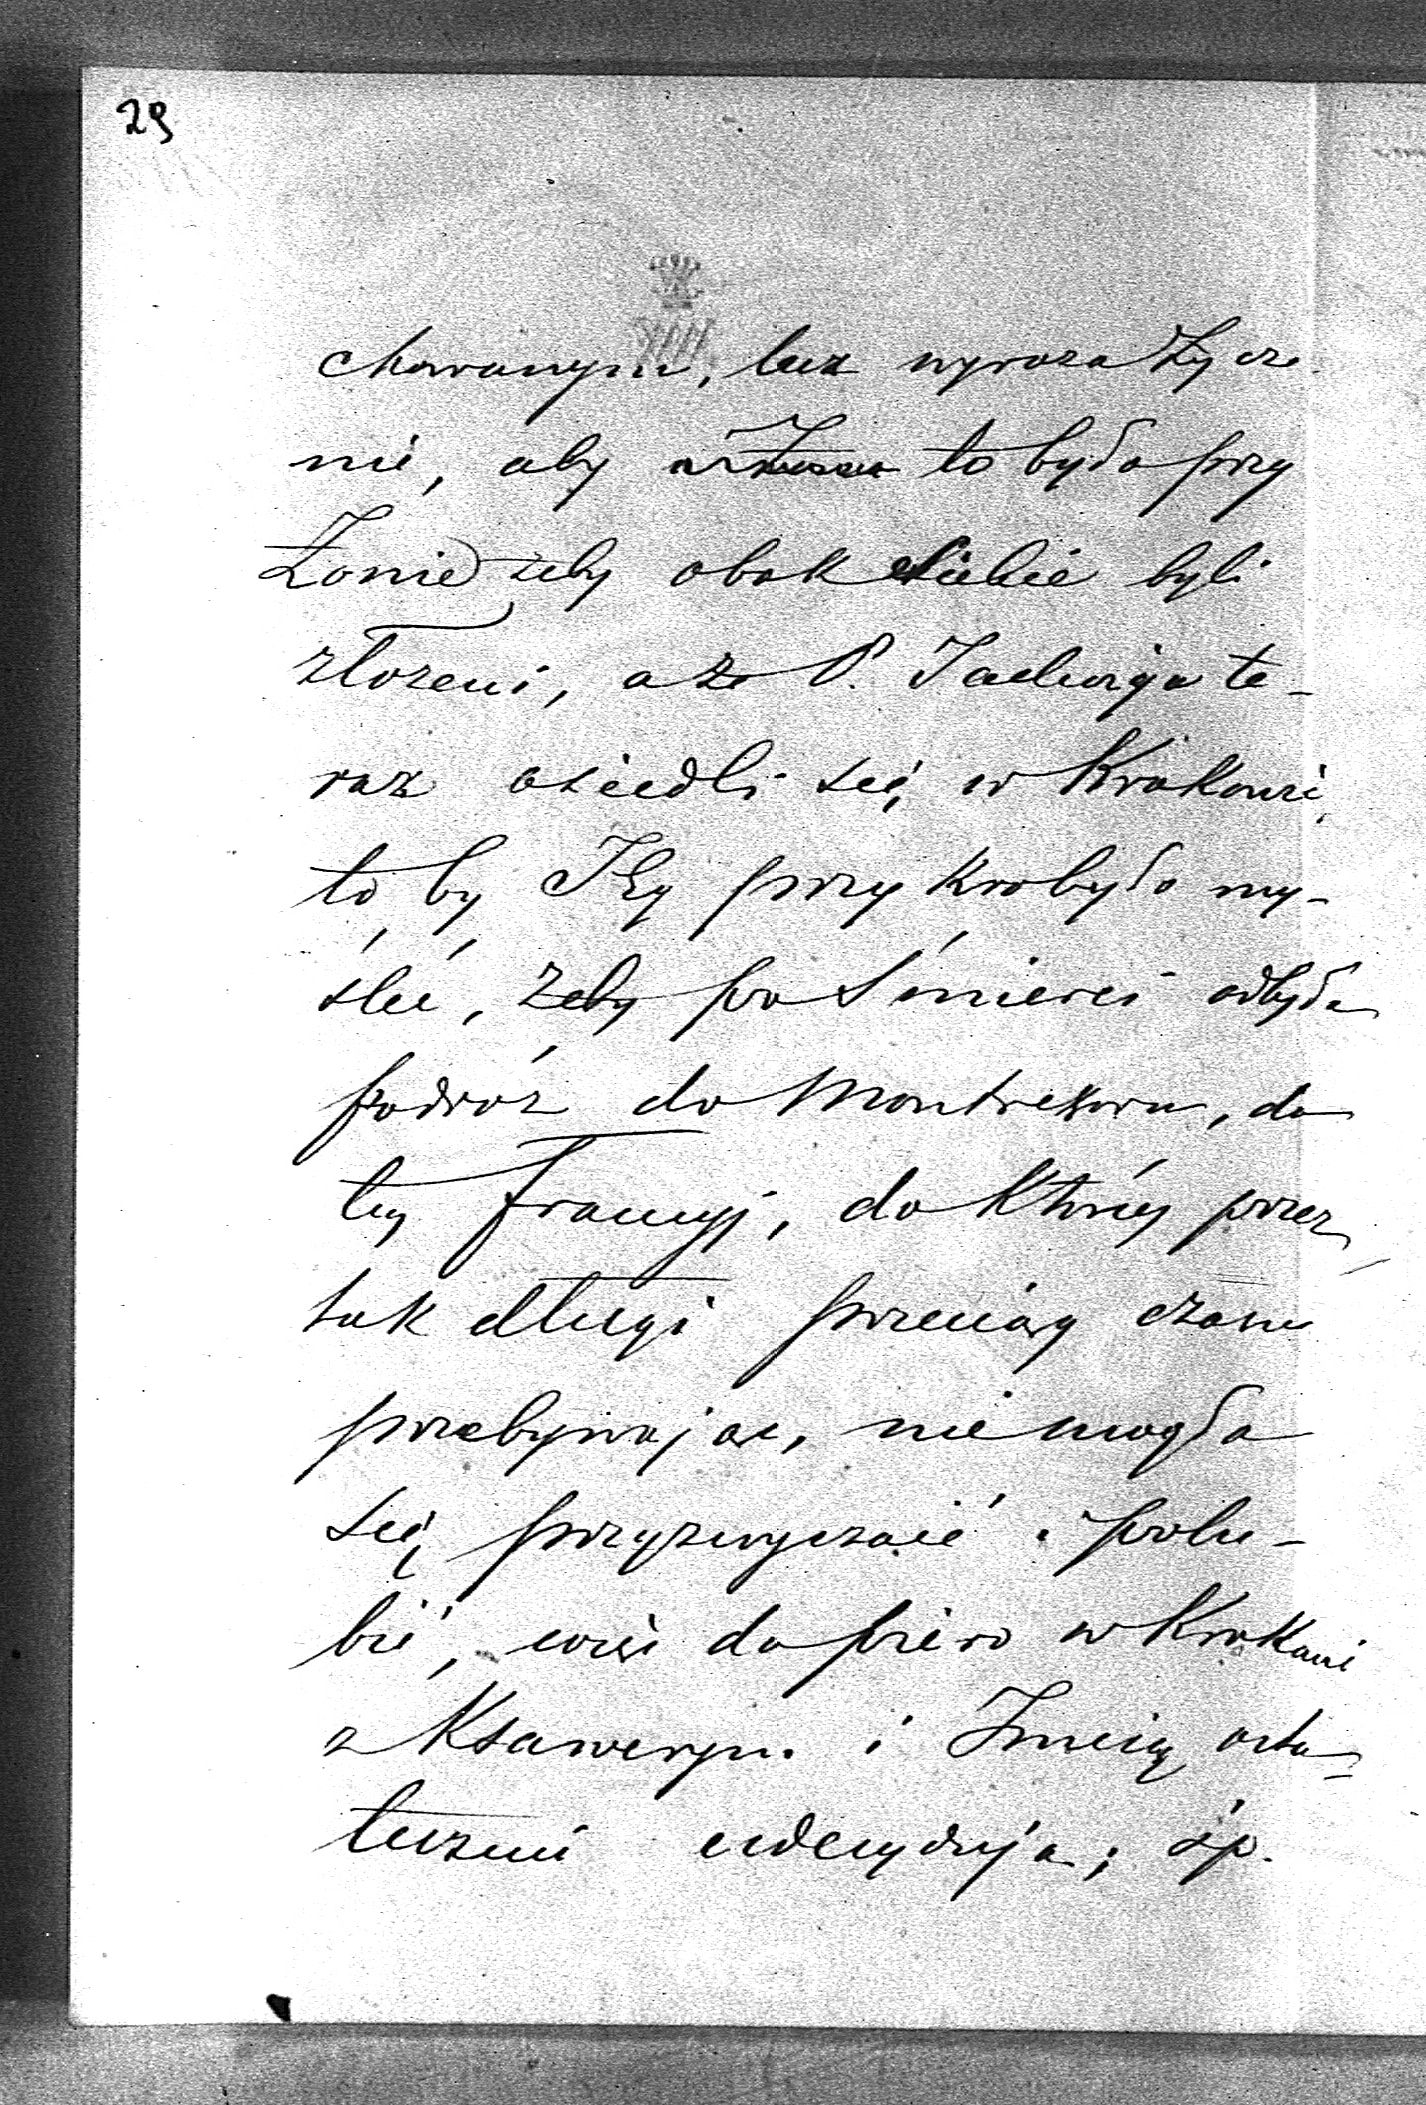 29
chowanym, lecz wyraża życze
nie, aby to było przy
Żonie żeby obok siebie byli
złożeni, a że P. Jadwiga te-
raz osiedli się w Krakowie
to by Jej przykro było my-
śleć, żeby po śmierci odbyła
podróż do Montresoru, do
tej Francyj, do któréj przez
tak długi przeciąg czasu
przebywając, nie mogła
się przyzwyczaić i polu-
bić, więc dopiero w Krakowie
z Ksawerym i osta-
tecznie zdecydują; śp.